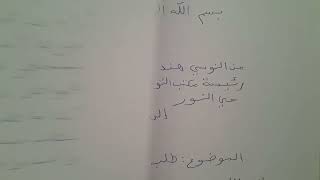 بسم الله ال
من النوسي هند
رئيسة مكتب النو
حي النور
إلى
الموضوع: طلب